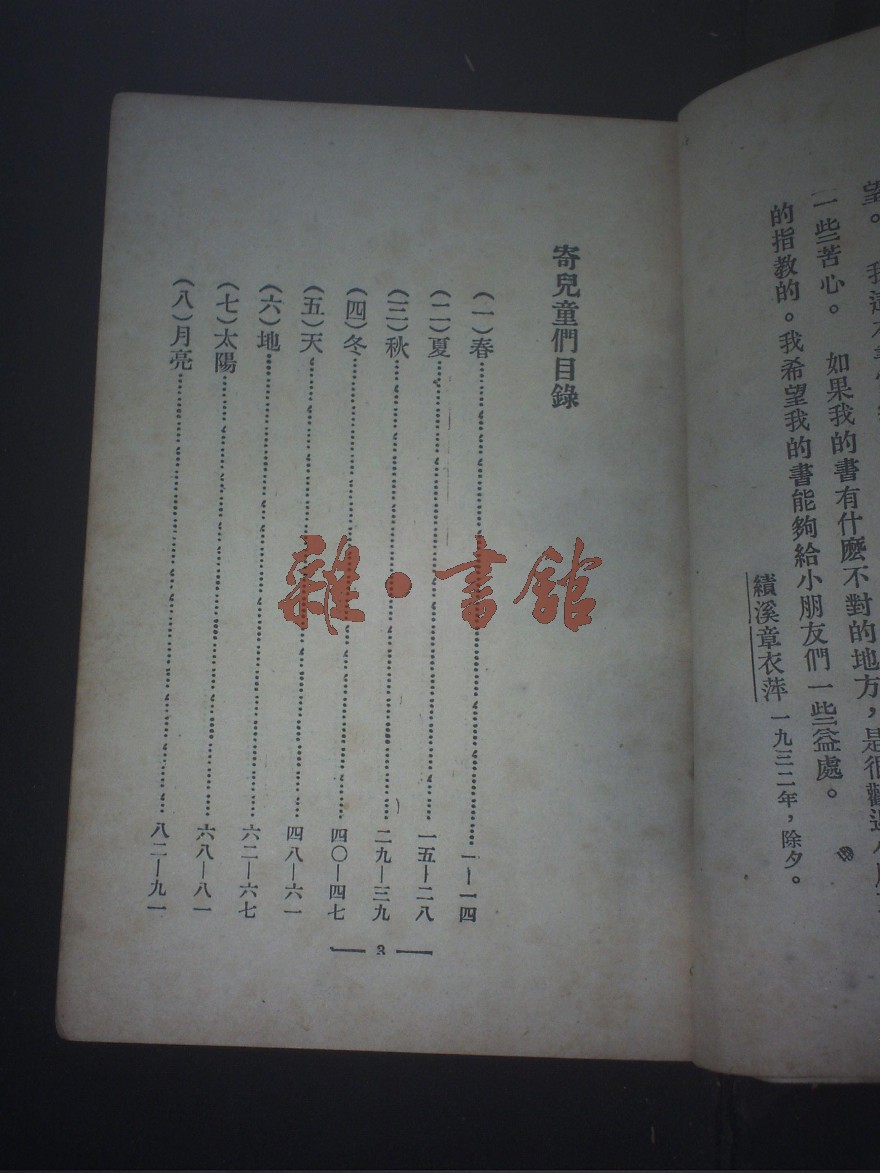 望。 我這本書
一些苦心。 如果我的書有什麼不對的地方，是很歡迎小朋友
的指教的。我希望我的書能夠給小朋友們一些益處。
績溪章衣萍 一九三二年，除夕。
寄兒童們目錄
（一）春……一—一四
（二）夏……一五—二八
（三）秋……二九—三九
（四）冬……四〇—四七
（五）天……四八—六一
（六）地……六二—六七
（七）太陽……六八—八一
（八）月亮……八二—九一
— 3 —
雜·書館